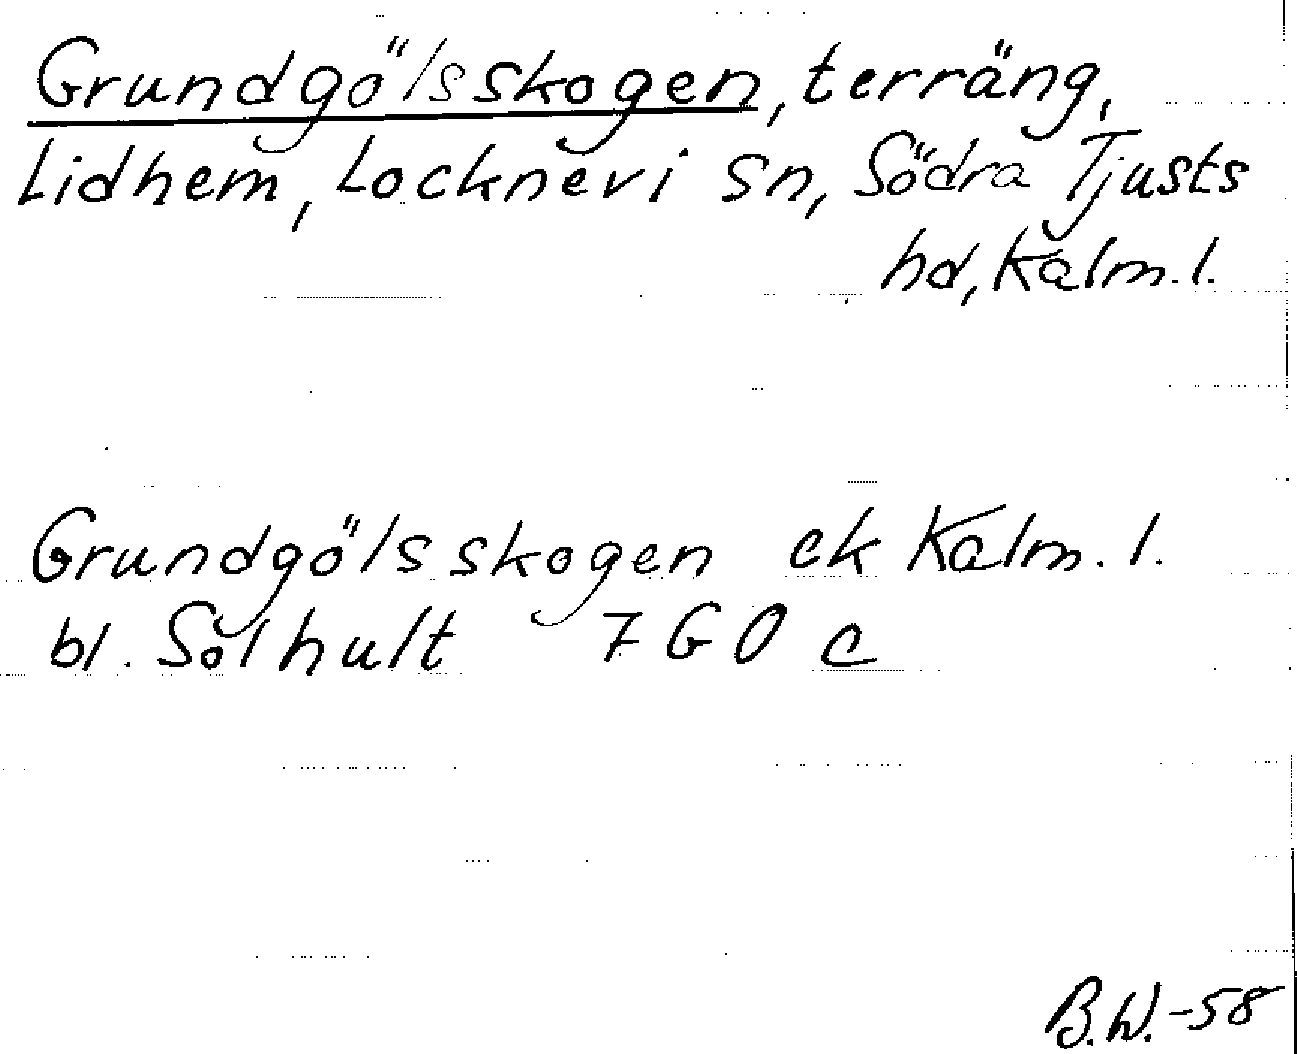 Grundgölsskogen, terräng,
Lidhem, Locknevi sn, Södra Tjusts
hd, Kalm. l.
Grundgölsskogen ek Kalm. l.
bl. Solhult 7 G O c
B.W.-58